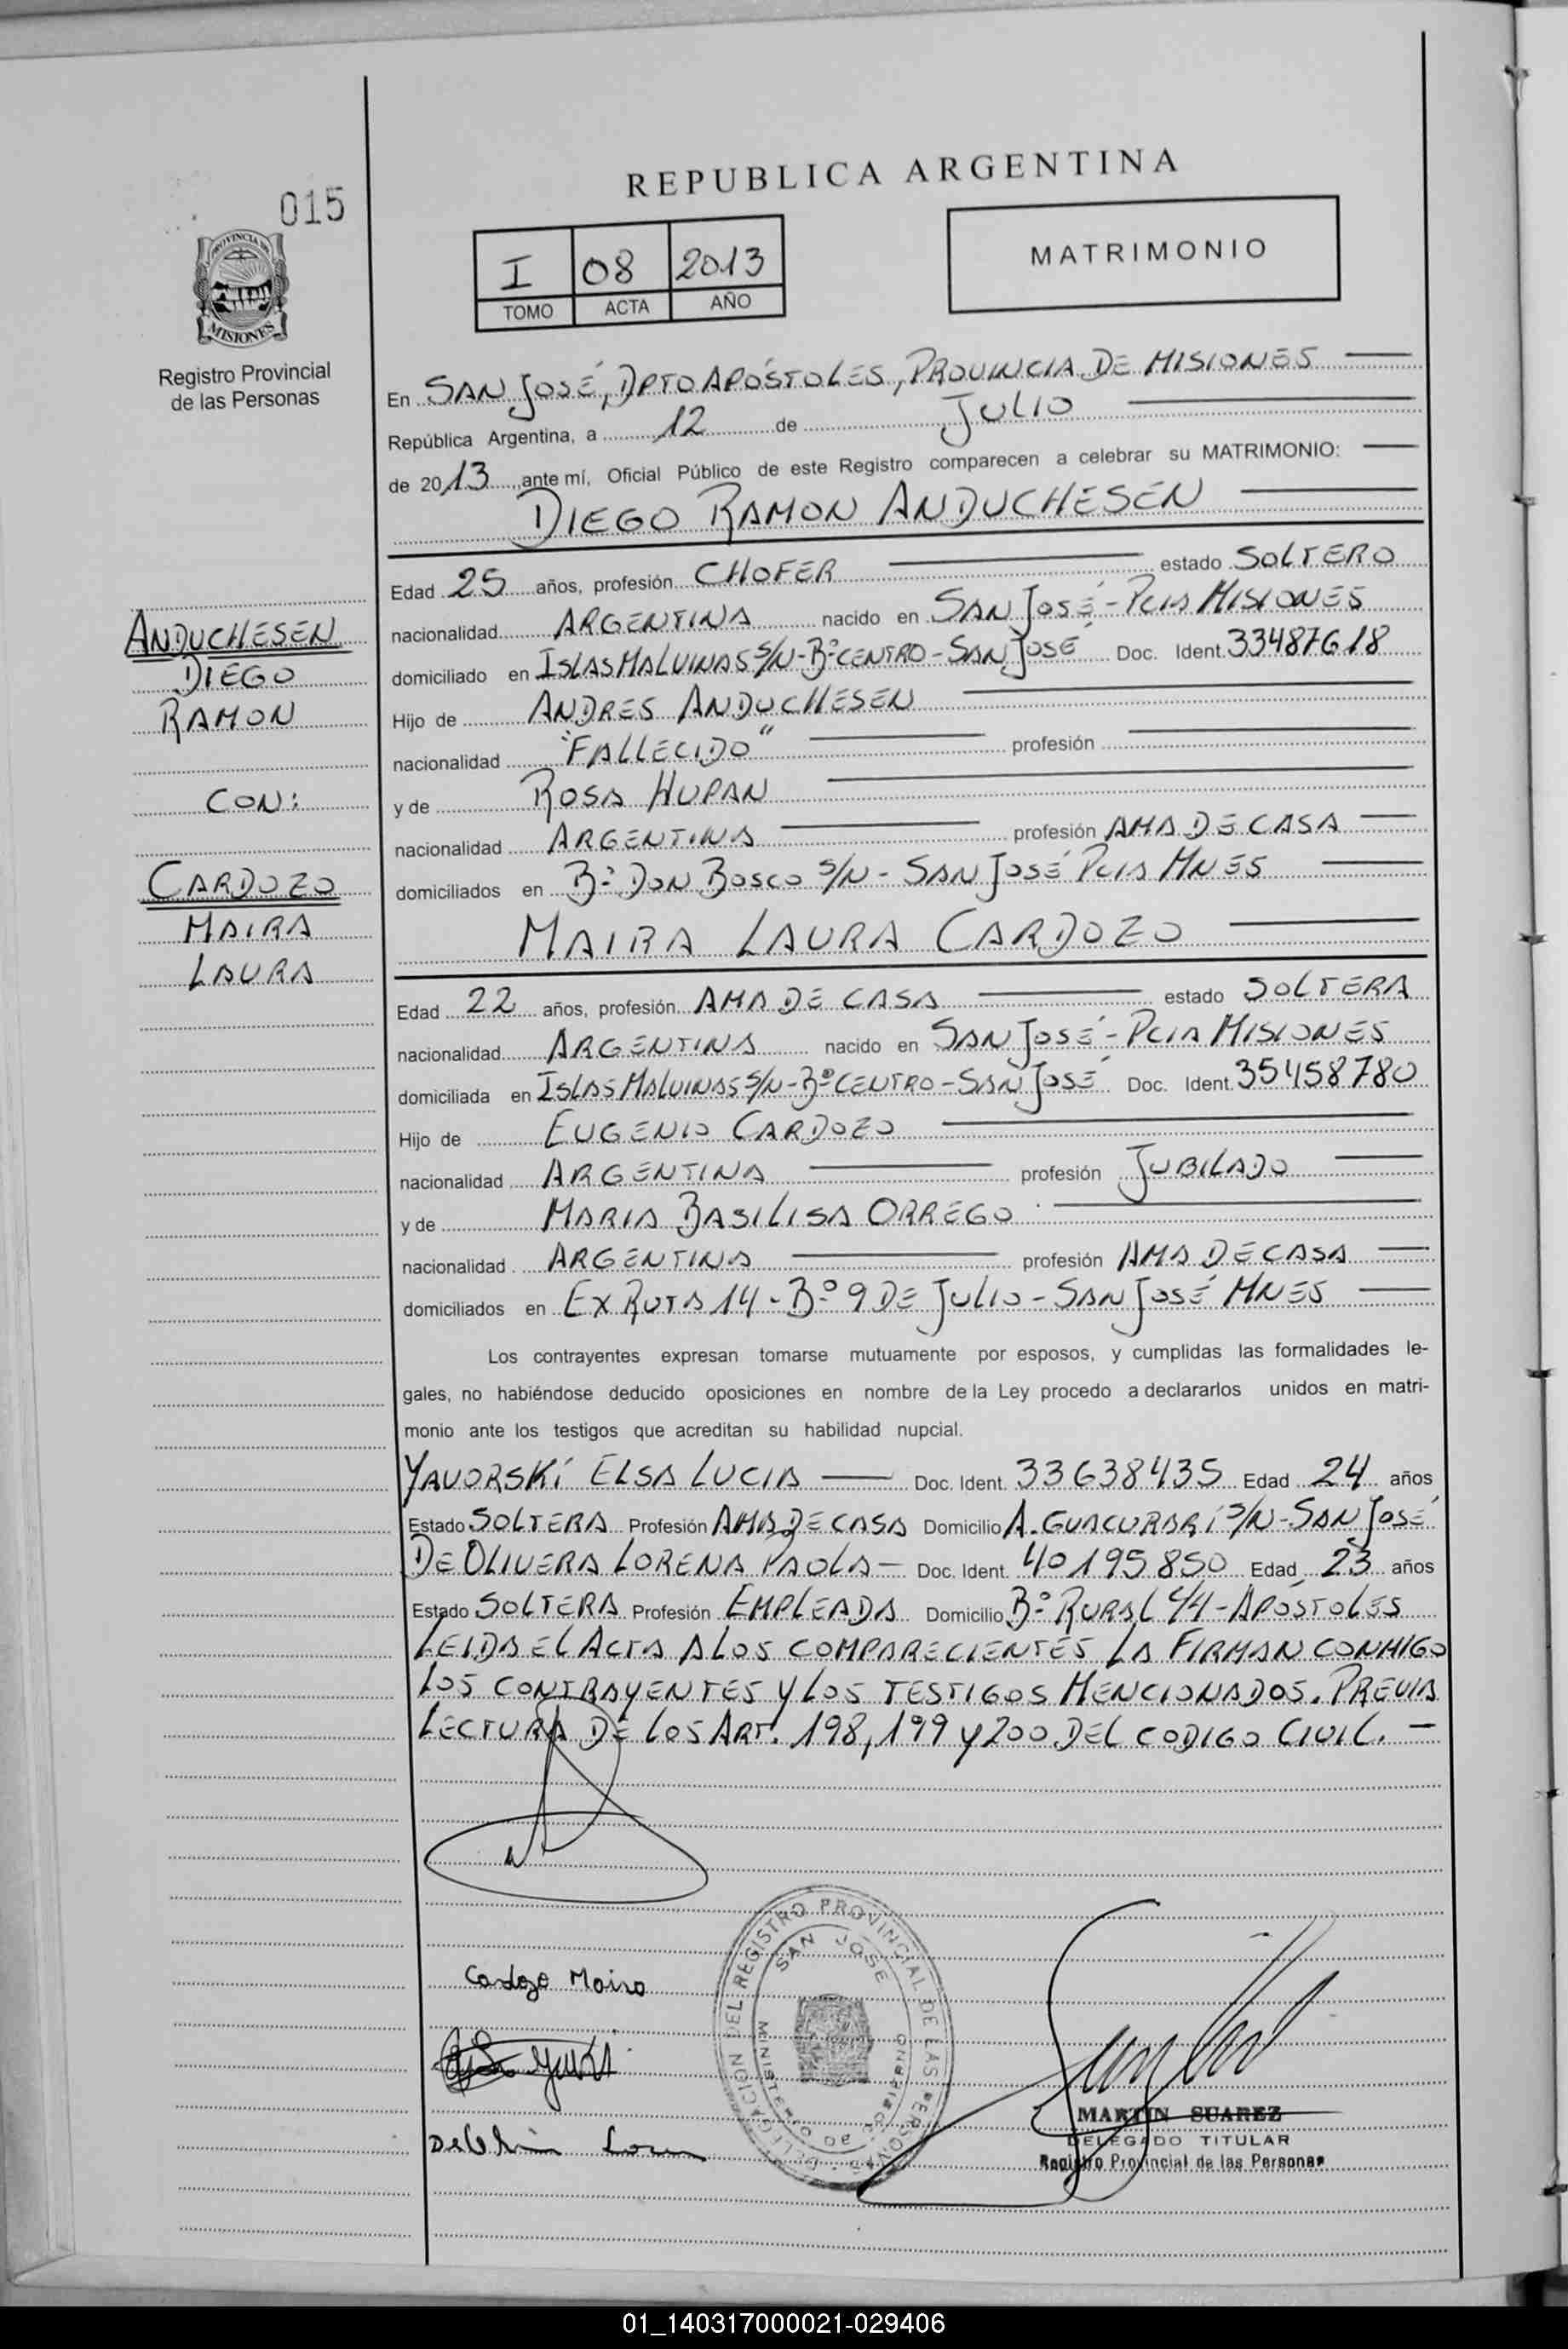 015
PROVINCIA DE
MISIONES
Registro Provincial
de las Personas
REPUBLICA ARGENTINA
I 08 2013
TOMO ACTA AÑO
MATRIMONIO
En SAN JOSÉ, DPTO APÓSTOLES, PROVINCIA DE MISIONES
República Argentina, a 12 de JULIO
de 2013, ante mí, Oficial Público de este Registro comparecen a celebrar su MATRIMONIO:
DIEGO RAMON ANDUCHESEN
Edad 25 años, profesión CHOFER estado SOLTERO
nacionalidad ARGENTINA nacido en SAN JOSÉ - PCIA MISIONES
domiciliado en ISLAS MALVINAS S/N - Bº CENTRO - SAN JOSÉ Doc. Ident. 33487618
Hijo de ANDRES ANDUCHESEN
nacionalidad "FALLECIDO" profesión
y de ROSA HUPAN
nacionalidad ARGENTINA profesión AMA DE CASA
domiciliados en Bº DON BOSCO S/N - SAN JOSÉ PCIA MNES
ANDUCHESEN
DIEGO
RAMON
CON:
CARDOZO
MAIRA
LAURA
MAIRA LAURA CARDOZO
Edad 22 años, profesión AMA DE CASA estado SOLTERA
nacionalidad ARGENTINA nacido en SAN JOSÉ - PCIA MISIONES
domiciliada en ISLAS MALVINAS S/N - Bº CENTRO - SAN JOSÉ Doc. Ident. 35458780
Hijo de EUGENIO CARDOZO
nacionalidad ARGENTINA profesión JUBILADO
y de MARIA BASILISA ORREGO
nacionalidad ARGENTINA profesión AMA DE CASA
domiciliados en EX RUTA 14 - Bº 9 DE JULIO - SAN JOSÉ MNES
Los contrayentes expresan tomarse mutuamente por esposos, y cumplidas las formalidades le-
gales, no habiéndose deducido oposiciones en nombre de la Ley procedo a declararlos unidos en matri-
monio ante los testigos que acreditan su habilidad nupcial.
YAVORSKI ELSA LUCIA Doc. Ident. 33638435 Edad 24 años
Estado SOLTERA Profesión AMA DE CASA Domicilio A. GUACURARÍ S/N - SAN JOSÉ
DE OLIVERA LORENA PAOLA - Doc. Ident. 40195850 Edad 23 años
Estado SOLTERA Profesión EMPLEADA Domicilio Bº RURAL - APÓSTOLES
LEIDA EL ACTA A LOS COMPARECIENTES LA FIRMAN CONMIGO
LOS CONTRAYENTES Y LOS TESTIGOS MENCIONADOS. PREVIA
LECTURA DE LOS ART. 198, 199 Y 200 DEL CODIGO CIVIL. -
DELEGACION DEL REGISTRO PROVINCIAL DE LAS PERSONAS
SAN JOSE
MINISTERIO DE GOBIERNO
Cardozo Maira
MARTIN SUAREZ
DELEGADO TITULAR
Registro Provincial de las Personas
01_140317000021-029406